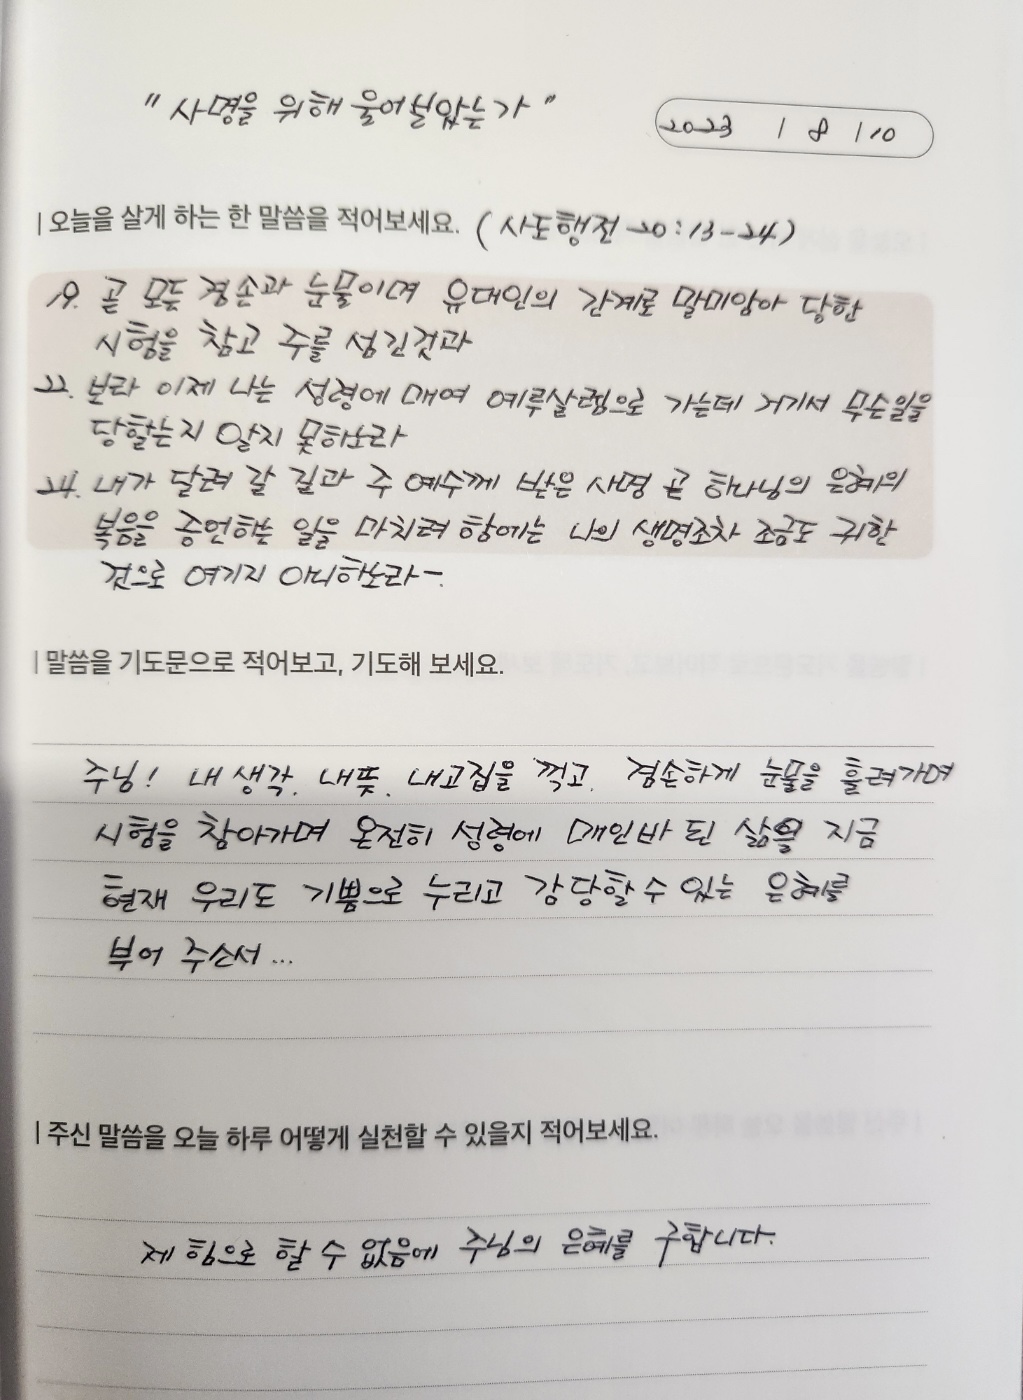 "사명을 위해 울어보았는가"
2023 / 8 / 10
| 오늘을 살게 하는 한 말씀을 적어보세요. (사도행전 20:13-24)
19. 곧 모든 겸손과 눈물이며 유대인의 간계로 말미암아 당한
시험을 참고 주를 섬긴것과
22. 보라 이제 나는 성령에 매여 예루살렘으로 가는데 거기서 무슨일을
당할는지 알지 못하노라
24. 내가 달려 갈 길과 주 예수께 받은 사명 곧 하나님의 은혜의
복음을 증언하는 일을 마치려 함에는 나의 생명조차 조금도 귀한
것으로 여기지 아니하노라-.
| 말씀을 기도문으로 적어보고, 기도해 보세요.
주님! 내 생각, 내뜻, 내고집을 꺽고, 겸손하게 눈물을 흘려가며
시험을 참아가며 온전히 성령에 매인바 된 삶을 지금
현재 우리도 기쁨으로 누리고 감당할 수 있는 은혜를
부어 주소서...
| 주신 말씀을 오늘 하루 어떻게 실천할 수 있을지 적어보세요.
제 힘으로 할 수 없음에 주님의 은혜를 구합니다.